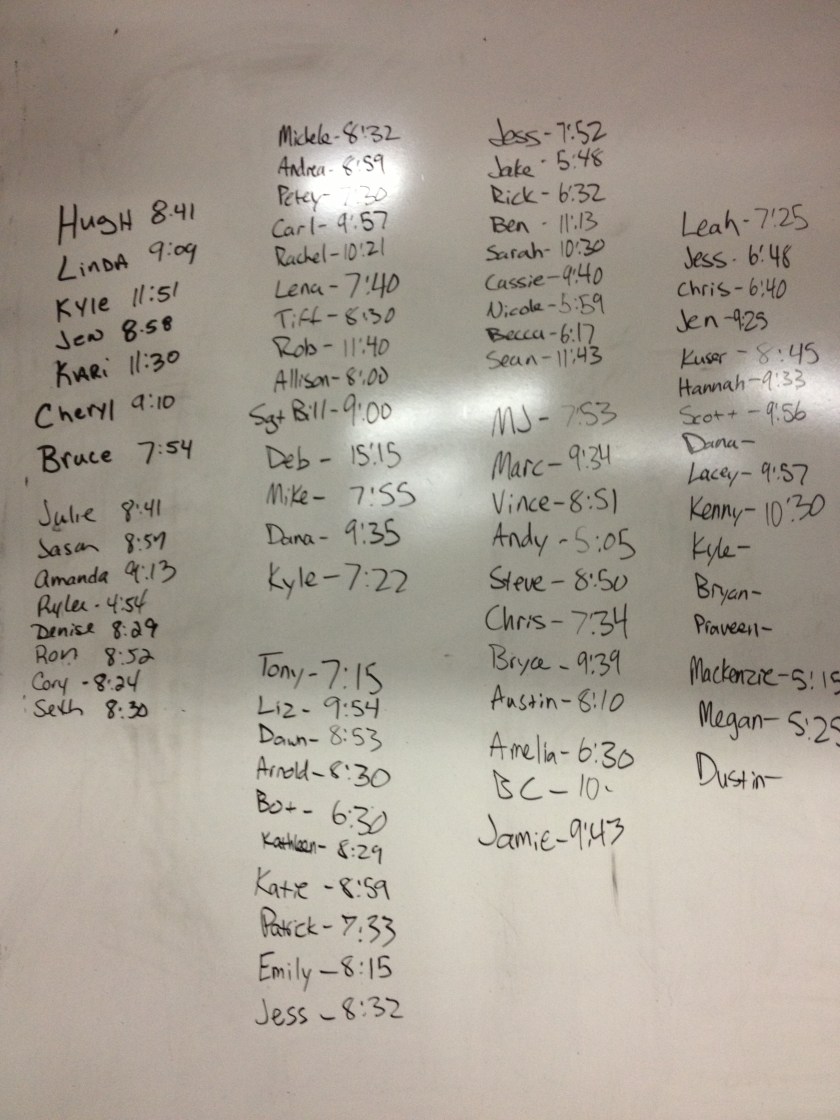 HugH 8:41
LinDA 9:09
Kyle 11:51
Jen 8:58
KARi 11:30
Cheryl 9:10
Bruce 7:54
Julie 8:41
Jason 8:57
Amanda 9:13
Rylee - 4:54
Denise 8:29
Ron 8:52
Cory - 8:24
Seth 8:30
Michele - 8:32
Andrea - 8:59
Petey - 7:30
Carl - 9:57
Rachel - 10:21
Lena - 7:40
Tiff - 8:30
Rob - 11:40
Allison - 8:00
Sgt Bill - 9:00
Deb - 15:15
Mike - 7:55
Dana - 9:35
Kyle - 7:22
Tony - 7:15
Liz - 9:54
Dawn - 8:53
Arnold - 8:30
Bot - 6:30
Kathleen - 8:29
Katie - 8:59
Patrick - 7:33
Emily - 8:15
Jess - 8:32
Jess - 7:52
Jake - 5:48
Rick - 6:32
Ben - 11:13
Sarah - 10:30
Cassie - 9:40
Nicole - 5:59
Becca - 6:17
Sean - 11:43
MJ - 7:53
Marc - 9:34
Vince - 8:51
Andy - 5:05
Steve - 8:50
Chris - 7:34
Bryce - 9:39
Austin - 8:10
Amelia - 6:30
BC - 10:
Jamie - 9:43
Leah - 7:25
Jess - 6:48
Chris - 6:40
Jen - 9:25
Kuser - 8:45
Hannah - 9:33
Scott - 9:56
Dana -
Lacey - 9:57
Kenny - 10:30
Kyle -
Bryan -
Praveen -
Mackenzie - 5:15
Megan - 5:25
Dustin -